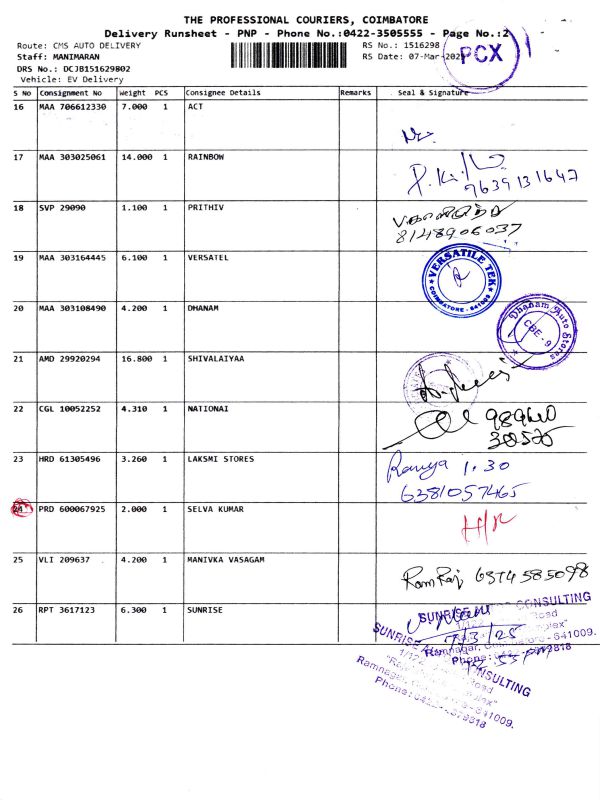 THE PROFESSIONAL COURIERS, COIMBATORE
Delivery Runsheet - PNP - Phone No.:0422-3505555 - Page No.:2
Route: CMS AUTO DELIVERY
RS No.: 1516298
Staff: MANIMARAN
RS Date: 07-Mar-202
DRS No.: DCJB151629802
Vehicle: EV Delivery
PCX
S No Consignment No Weight PCS Consignee Details Remarks Seal & Signature
16 MAA 706612330 7.000 1 ACT
17 MAA 303025061 14.000 1 RAINBOW
9639131647
18 SVP 29090 1.100 1 PRITHIV
8148906037
19 MAA 303164445 6.100 1 VERSATEL
VERSATILE TEK
COIMBATORE
20 MAA 303108490 4.200 1 DHANAM
Dhanam Auto Stores
CBE - 9
21 AMD 29920294 16.800 1 SHIVALAIYAA
22 CGL 10052252 4.310 1 NATIONAI
23 HRD 61305496 3.260 1 LAKSMI STORES
Ramya 1.30
6381057465
24 PRD 600067925 2.000 1 SELVA KUMAR
H/R
25 VLI 209637 4.200 1 MANIVKA VASAGAM
Ram Raj 6374585098
26 RPT 3617123 6.300 1 SUNRISE
SUNRISE CONSULTING
7/3/25
Ramnagar, - 641009.
SUNRISE CONSULTING
Ramnagar, 641009.
Phone: 0422